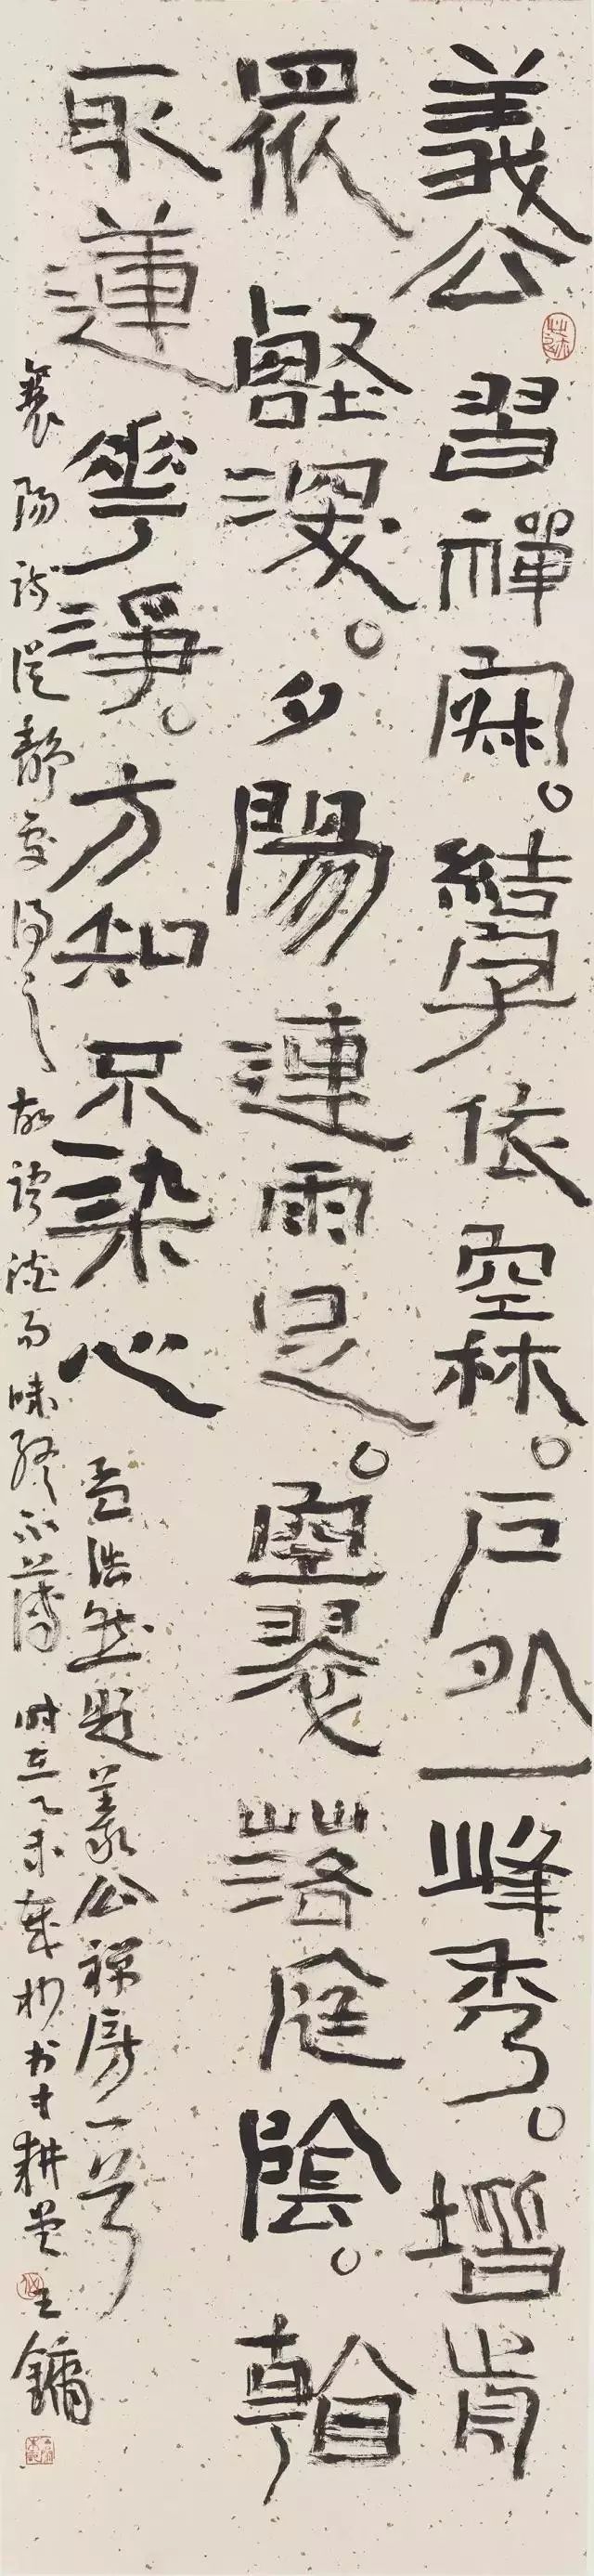 義公習禪寂。結宇依空林。戶外一峰秀。堦前
眾壑深。夕陽連雨足。空翠落庭陰。看
取蓮華淨。方知不染心 孟浩然題義公禪房一首
襄陽詩從靜處得之故語淡而味終不薄 時在乙未歲杪書 耕堂 王鏞